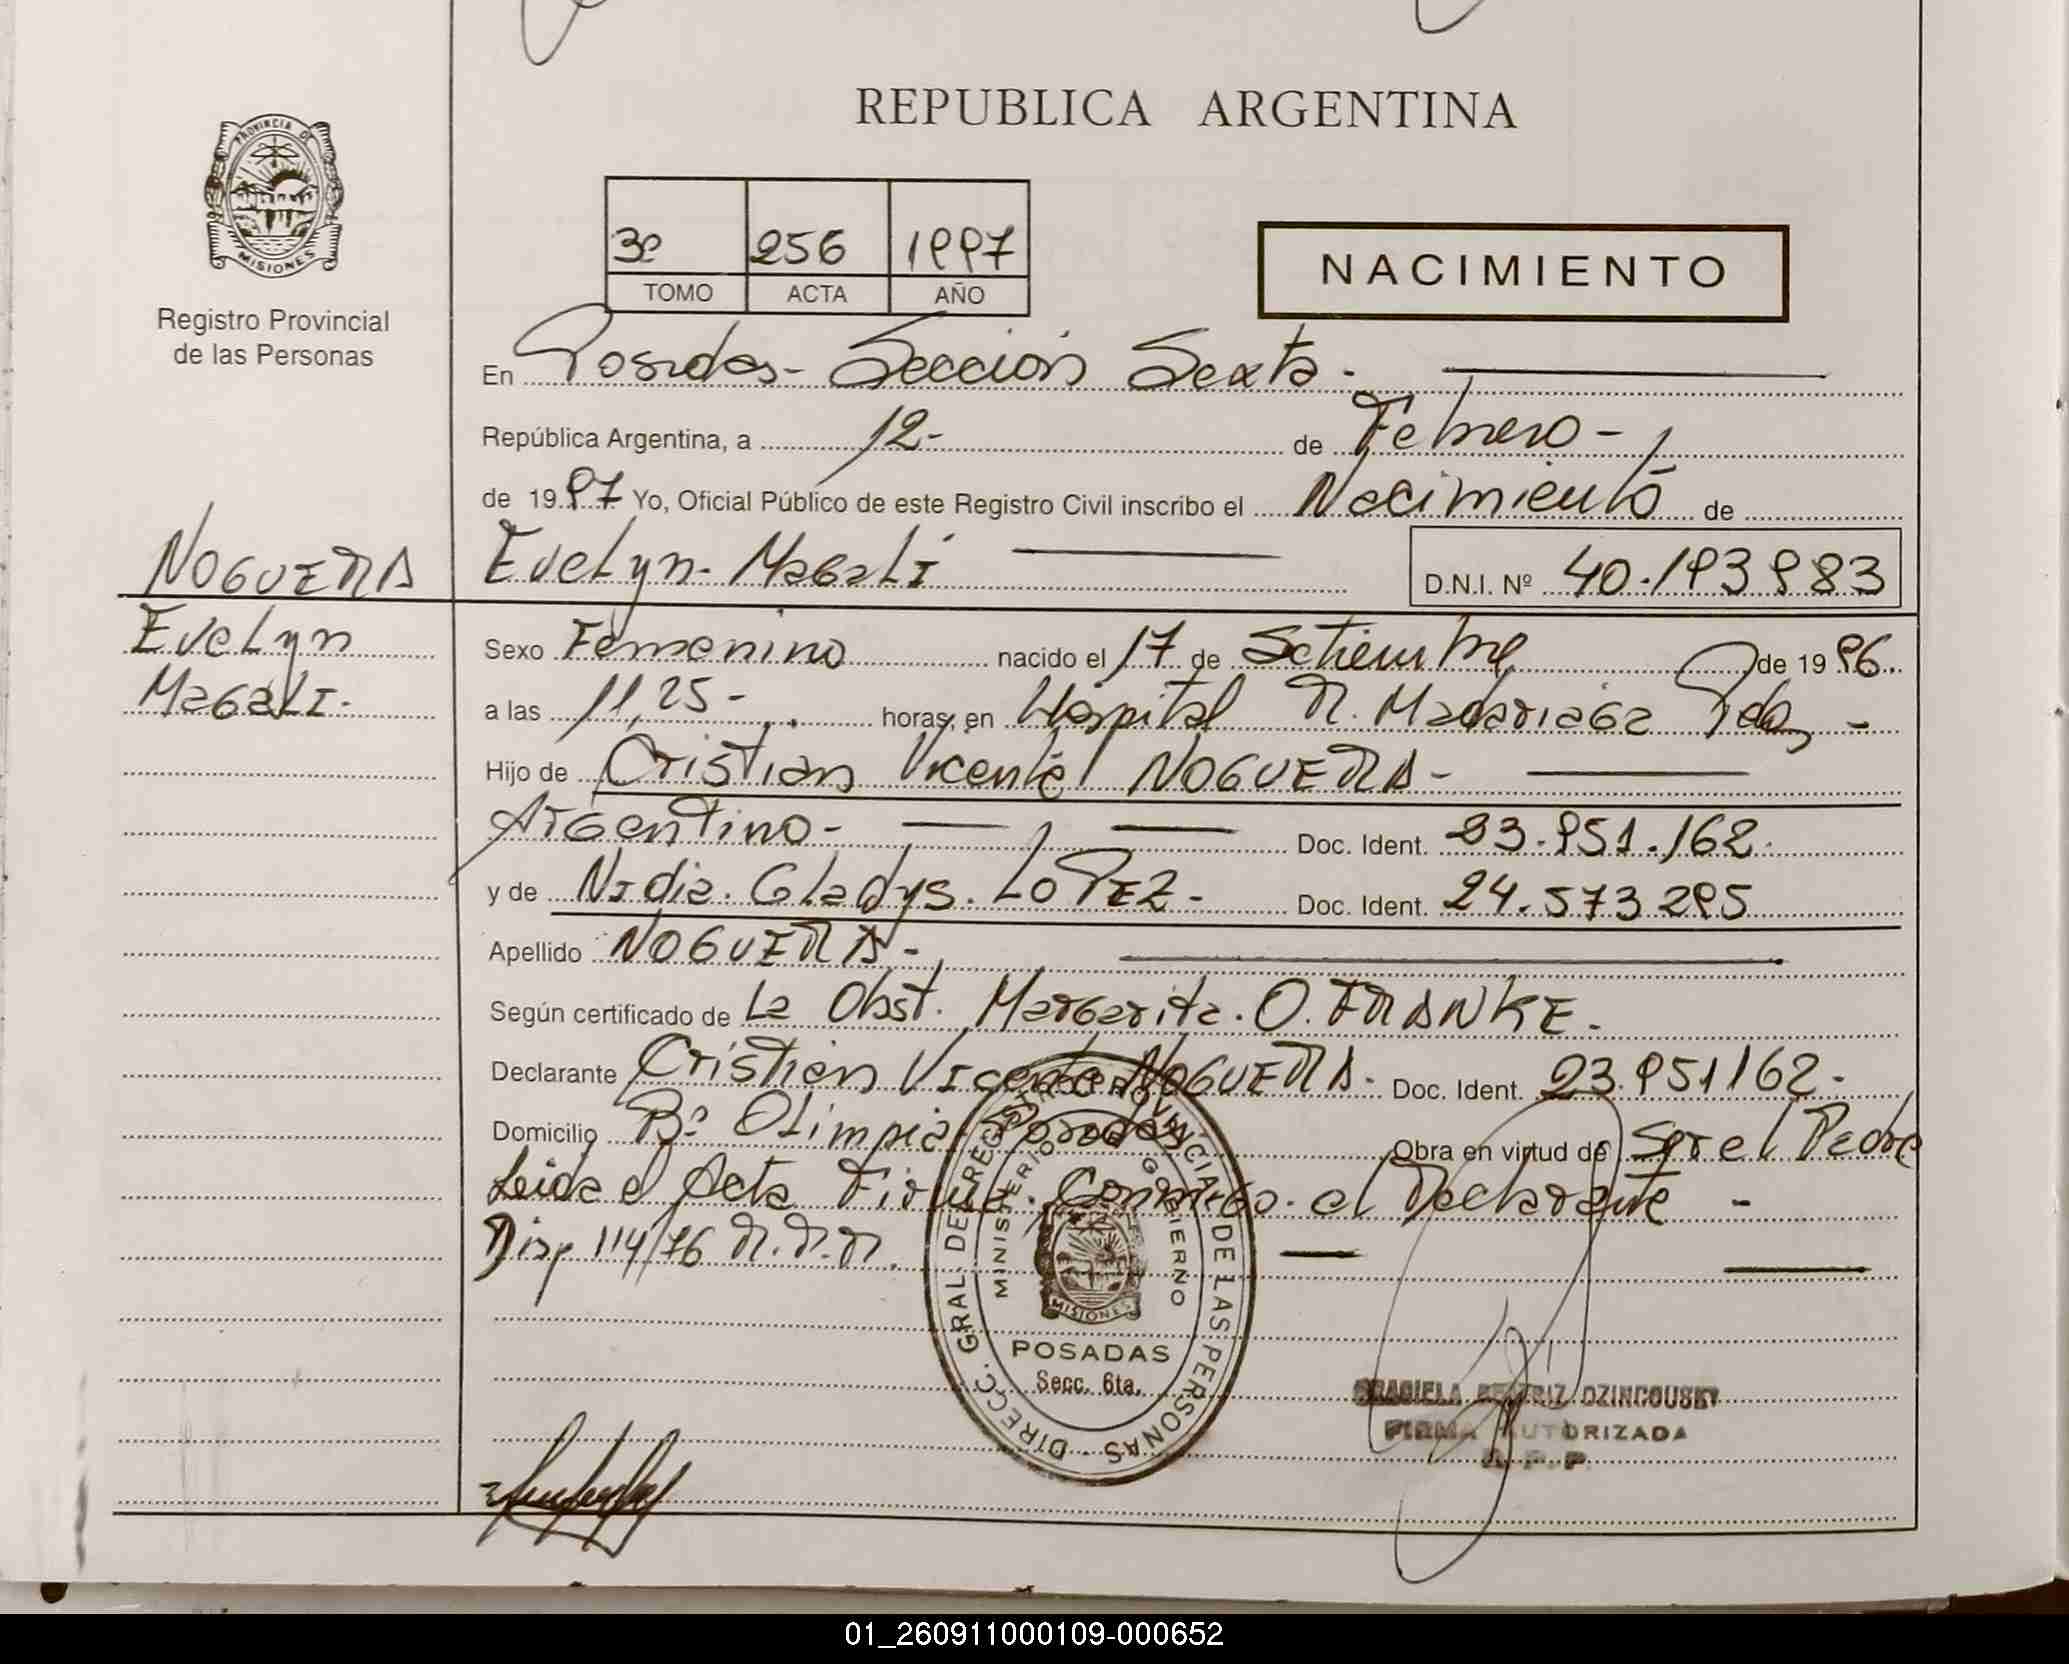 REPUBLICA ARGENTINA
PROVINCIA DE
MISIONES
Registro Provincial
de las Personas
3º 256 1997
TOMO ACTA AÑO
NACIMIENTO
En Posadas - Sección Sexta -
República Argentina, a 12 - de Febrero -
de 1997 Yo, Oficial Público de este Registro Civil inscribo el Nacimiento de
NOGUERA
Evelyn
Magali.
Evelyn - Magali D.N.I. Nº 40.193983
Sexo Femenino nacido el 17 de Setiembre de 1996
a las 11,25 - horas, en Hospital R. Madariaga Pdas -
Hijo de Cristian Vicente NOGUERA -
Argentino - Doc. Ident. 23.951.162.
y de Nidia. Gladys. LOPEZ - Doc. Ident. 24.573295
Apellido NOGUERA -
Según certificado de La Obst. Margarita. O. FRANKE.
Declarante Cristian Vicente NOGUERA - Doc. Ident. 23.951162 -
Domicilio Bº Olimpia - Posadas Obra en virtud de Ser el Padre
Leida el Acta Firma. Conmigo. el Declarante -
Disp 114/76 R.P.P.
DIRECC. GRAL. DE REGISTRO PROVINCIAL DE LAS PERSONAS
MINISTERIO GOBIERNO
MISIONES
POSADAS
Secc. 6ta.
GRACIELA BEATRIZ OZINCOUSKY
FIRMA AUTORIZADA
R. P. P.
01_260911000109-000652